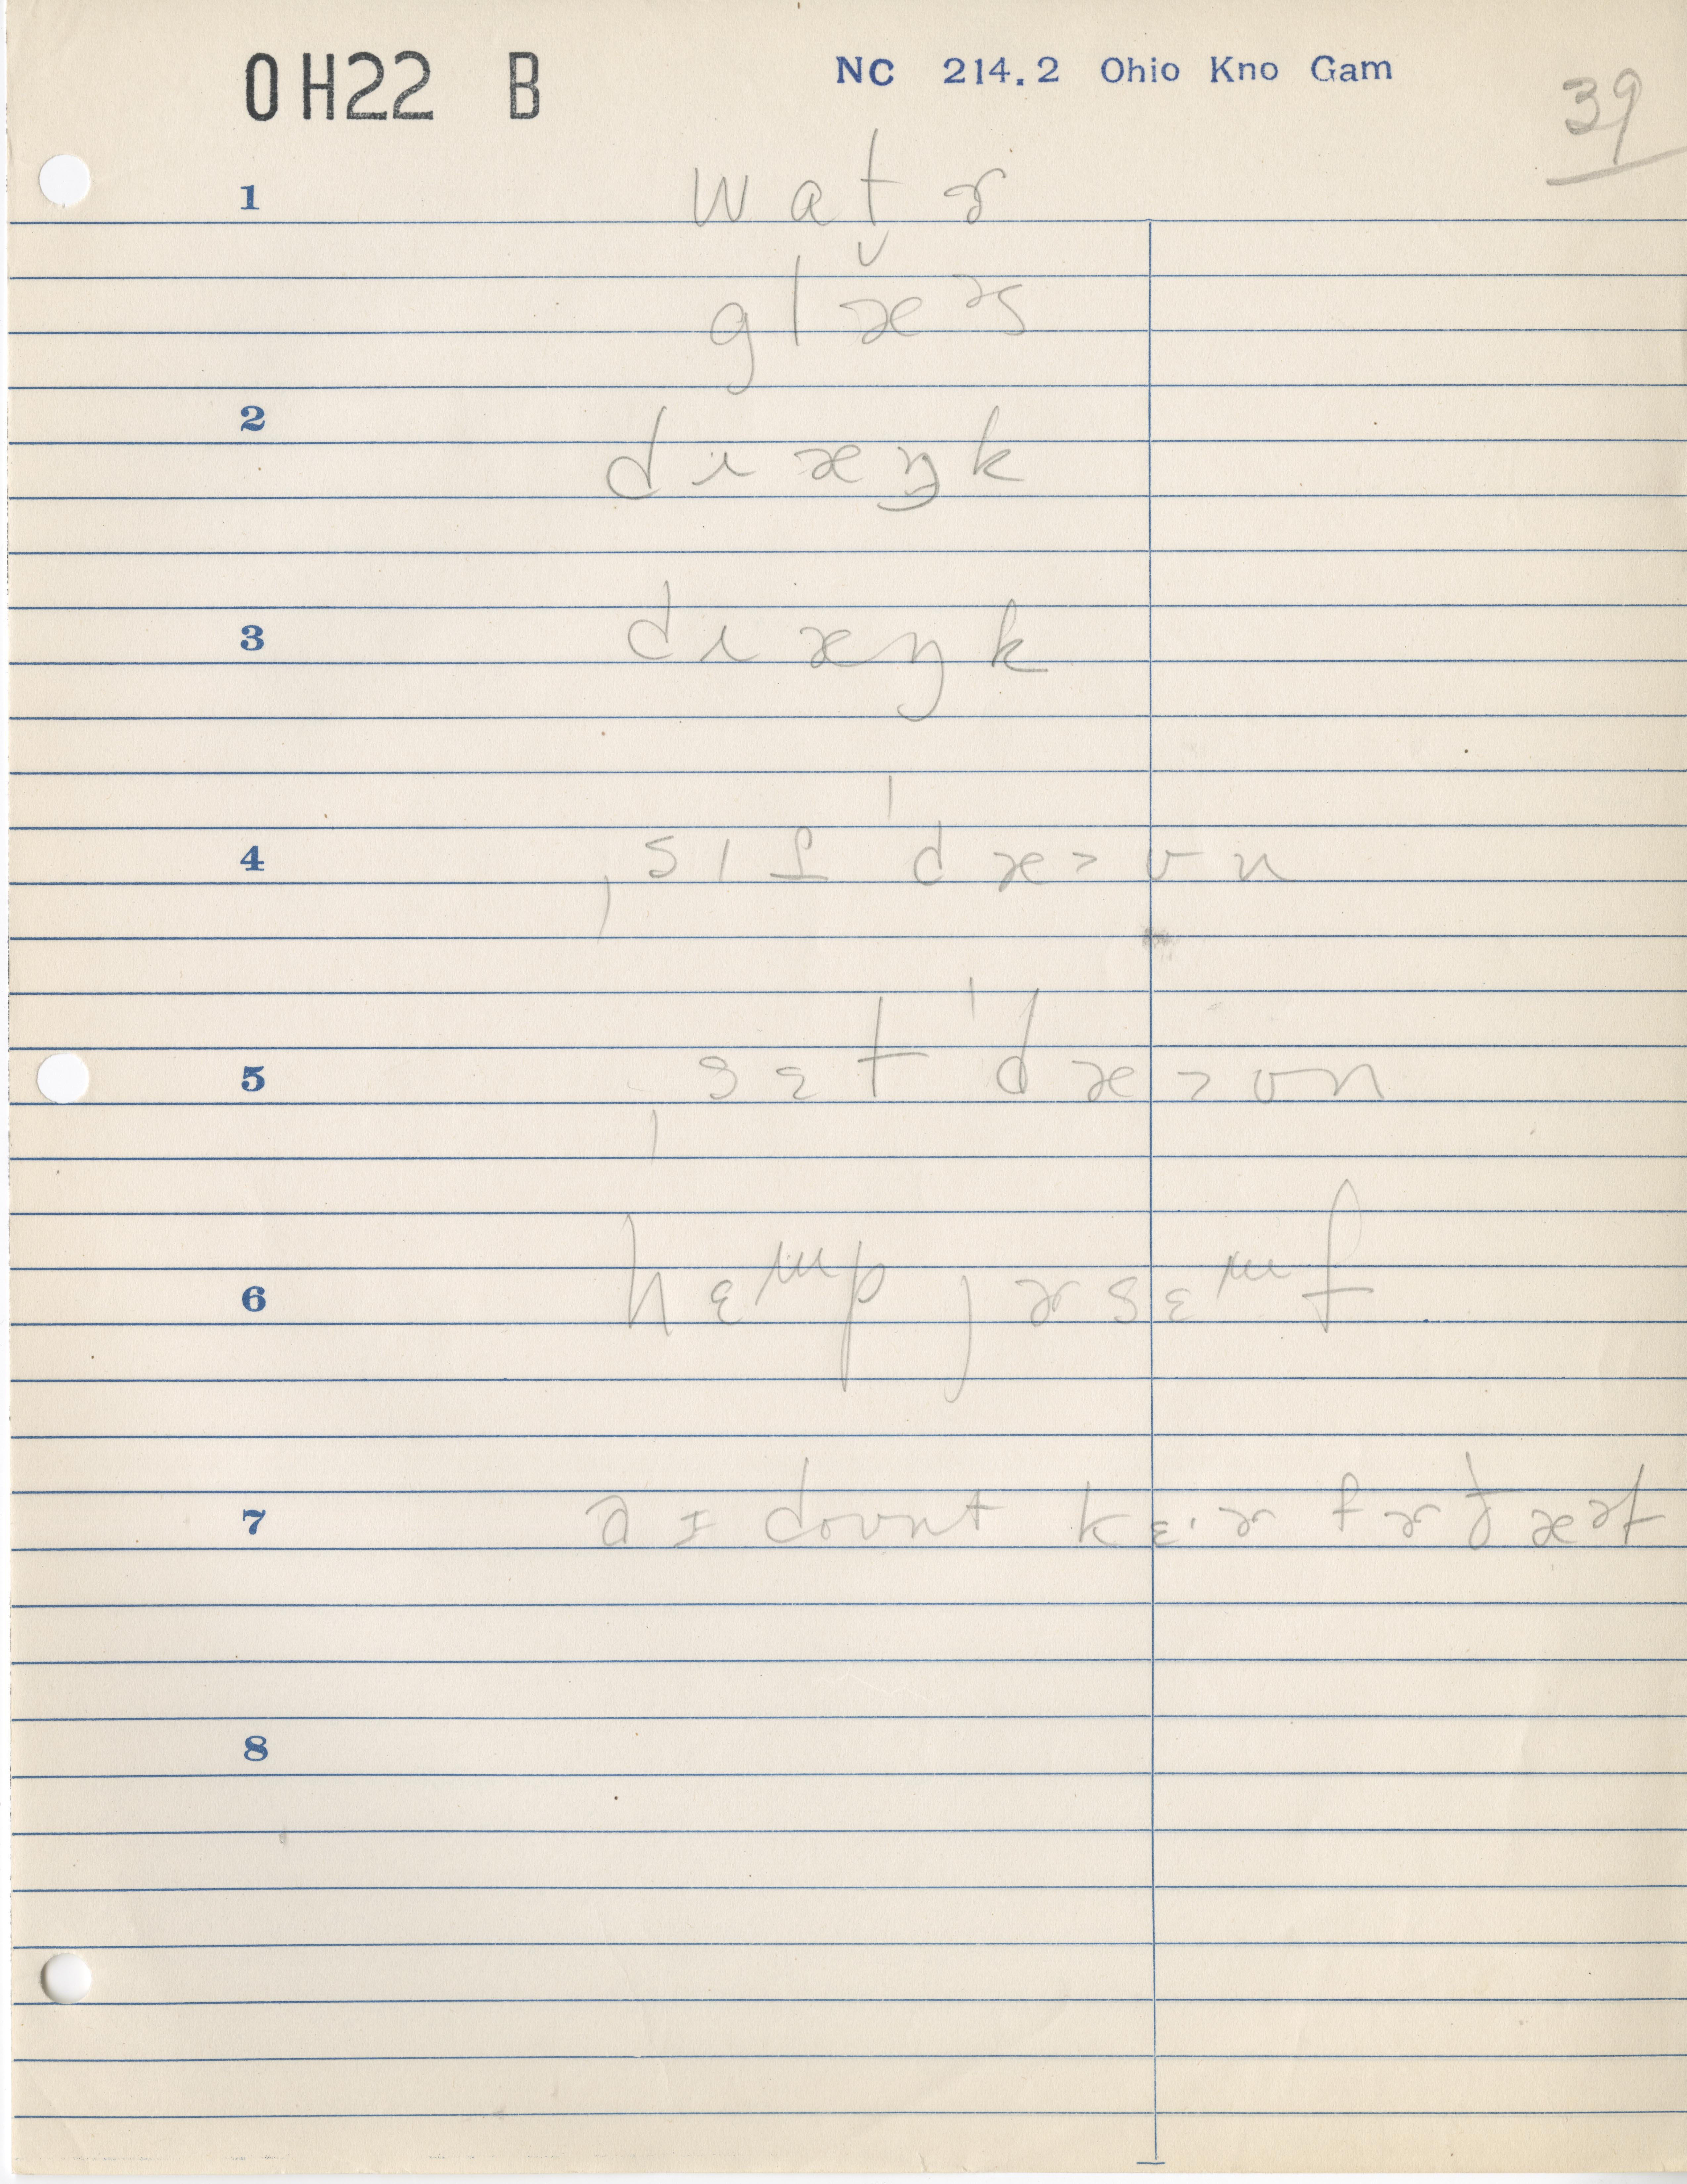 OH22 B
NC 214.2 Ohio Kno Gam
39
1 wat̬ɚ
glæᵊs
2 dræŋk
3 dræŋk
4 ˌsɪt ˈdæ>ʊn
5 ˌsɛt ˈdæ>ʊn
6 hɛɯp jɚsɛɯf
7 aɪ doʊnt kɛ·ɚ fɚ ðæᵊt
8